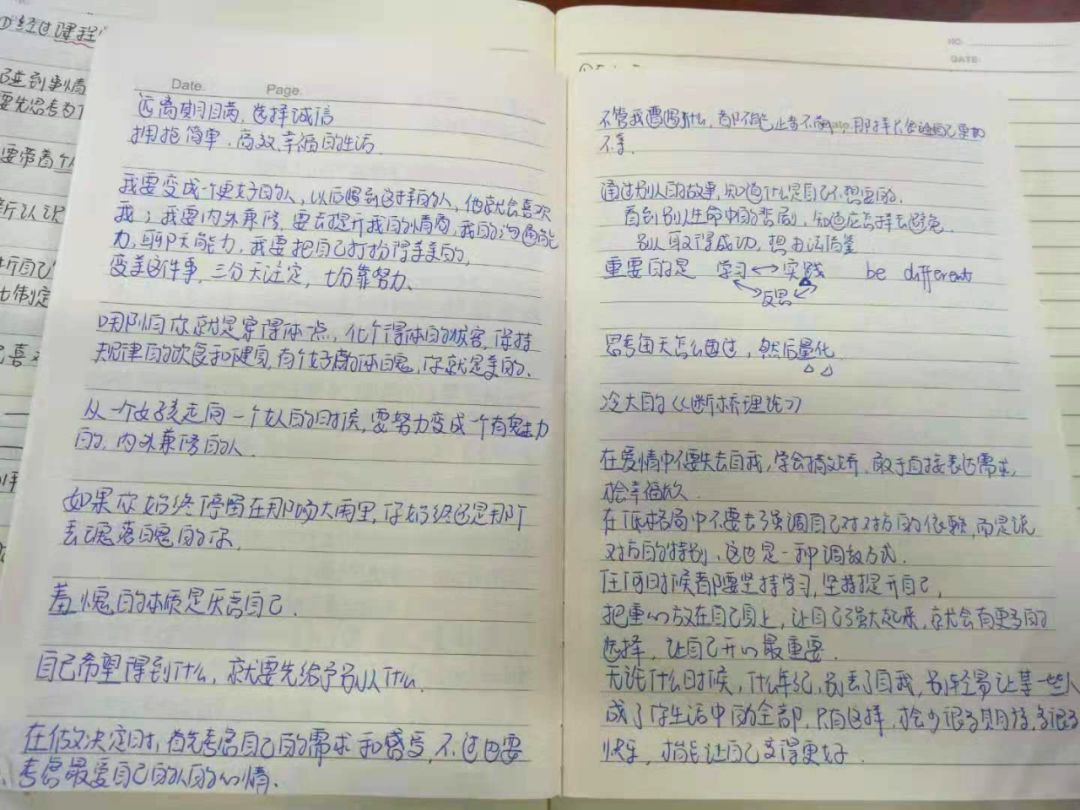 ①经过课程
Date.
Page.
远离期满,选择诚信
拥抱简单、高效幸福的生活
我要变成一个更好的人,以后遇到这样的人,他就会喜欢
我;我要内外兼修,要去提升我的情商,我的沟通能
力,聊天能力,我要把自己打扮得美美的,
变美这件事,三分天注定,七分靠努力、
哪怕你就是穿得体点,化个得体的妆容,保持
规律的饮食和健身,有个好的体魄,你就是美的、
从一个女孩走向一个女人的时候,要努力变成一个有魅力
的,内外兼修的人
如果你始终停留在那场大雨里,你始终还是那个
丢魂落魄的你
羞愧的本质是厌恶自己.
自己希望得到什么,就要先给予别人什么.
在做决定时,首先考虑自己的需求和感受,不过也要
考虑最爱自己的人的心情.
NO.
DATE
不管我遇到什么,都不能止步不前,那样只会让自己更加
不幸.
通过别人的故事,知道什么是自己不想要的.
看到别人生命中的悲剧,知道应怎样去避免.
别人取得成功,想办法借鉴
重要的是 学习↔实践 be different
反思
思考每天怎么度过,然后量化
冷大的《《断桥理论》》
在爱情中不要失去自我,学会撒娇,敢于直接表达需求,
抢幸福放.
在低格局中不要去强调自己对对方的依赖,而是说
对方的特别,这也是一种调教方式.
任何时候都要坚持学习,坚持提升自己,
把重心放在自己身上,让自己强大起来,你就会有更多的
选择,让自己开心最重要.
无论什么时候,什么年纪,别丢了自我,别轻易让某一些人
成了你生活中的全部,只有这样,才会少很多期待,多很多
快乐,才能让自己变得更好